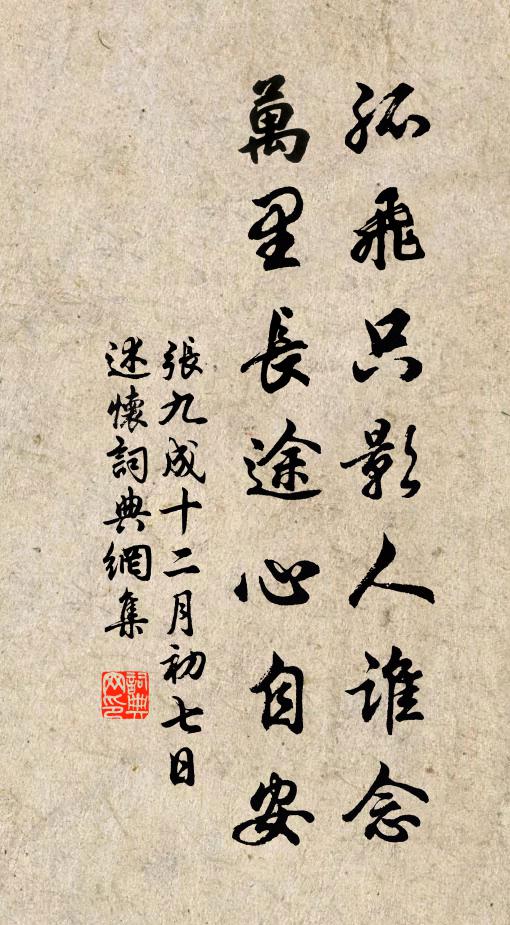 孤飛只影人誰念
萬里長途心自安
張九成十二月初七日
述懷詞典網集
詞典網印